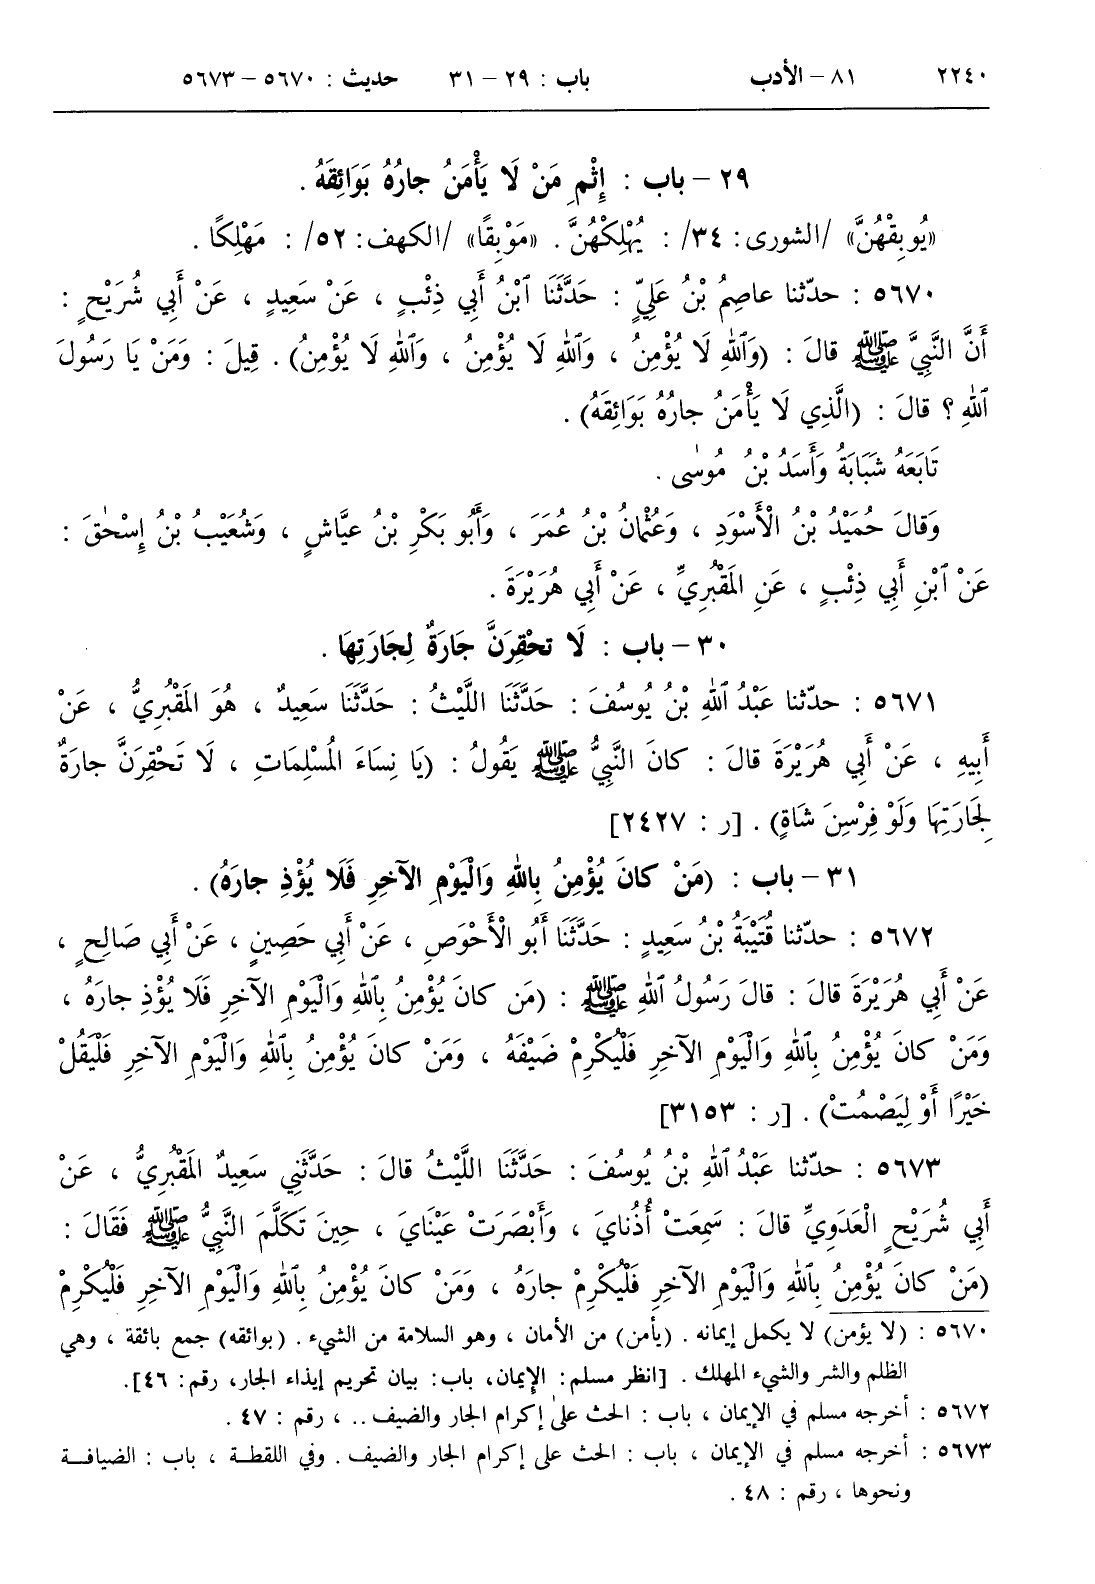 ٢٢٤٠ ٨١ – الأدب باب : ٢٩ – ٣١ حديث : ٥٦٧٠ – ٥٦٧٣
٢٩ – باب : إِثْمِ مَنْ لَا يَأْمَنُ جارُهُ بَوَائِقَهُ .
«يُوبِقْهُنَّ» /الشورى: ٣٤/ : يُهْلِكْهُنَّ . «مَوْبِقًا» /الكهف: ٥٢/ : مَهْلِكًا .
٥٦٧٠ : حدّثنا عاصِمُ بْنُ عَلِيٍّ : حَدَّثَنَا ٱبْنُ أَبِي ذِئْبٍ ، عَنْ سَعِيدٍ ، عَنْ أَبِي شُرَيْحٍ :
أَنَّ النَّبِيَّ ﷺ قالَ : (وَٱللهِ لَا يُؤْمِنُ ، وَٱللهِ لَا يُؤْمِنُ ، وَٱللهِ لَا يُؤْمِنُ) . قِيلَ : وَمَنْ يَا رَسُولَ
ٱللهِ ؟ قالَ : (الَّذِي لَا يَأْمَنُ جارُهُ بَوَائِقَهُ) .
تَابَعَهُ شَبَابَةُ وَأَسَدُ بْنُ مُوسٰى .
وَقالَ حُمَيْدُ بْنُ الْأَسْوَدِ ، وَعُثْمانُ بْنُ عُمَرَ ، وَأَبُو بَكْرِ بْنُ عيَّاشٍ ، وَشُعَيْبُ بْنُ إِسْحٰقَ :
عَنْ ٱبْنِ أَبِي ذِئْبٍ ، عَنِ المَقْبُرِيِّ ، عَنْ أَبِي هُرَيْرَةَ .
٣٠ – باب : لَا تحْقِرَنَّ جَارَةٌ لِجَارَتِهَا .
٥٦٧١ : حدّثنا عَبْدُ ٱللهِ بْنُ يُوسُفَ : حَدَّثَنَا اللَّيْثُ : حَدَّثَنَا سَعِيدٌ ، هُوَ المَقْبُرِيُّ ، عَنْ
أَبِيهِ ، عَنْ أَبِي هُرَيْرَةَ قالَ : كانَ النَّبِيُّ ﷺ يَقُولُ : (يَا نِسَاءَ المُسْلِمَاتِ ، لَا تَحْقِرَنَّ جارَةٌ
لِجَارَتِهَا وَلَوْ فِرْسِنَ شَاةٍ) . [ر : ٢٤٢٧]
٣١ – باب : (مَنْ كانَ يُؤْمِنُ بِٱللهِ وَالْيَوْمِ الآخِرِ فَلَا يُؤْذِ جارَهُ) .
٥٦٧٢ : حدّثنا قُتَيْبَةُ بْنُ سَعِيدٍ : حَدَّثَنَا أَبُو الْأَحْوَصِ ، عَنْ أَبِي حَصِينٍ ، عَنْ أَبِي صَالِحٍ ،
عَنْ أَبِي هُرَيْرَةَ قالَ : قالَ رَسُولُ ٱللهِ ﷺ : (مَن كانَ يُؤْمِنُ بِٱللهِ وَالْيَوْمِ الآخِرِ فَلَا يُؤْذِ جارَهُ ،
وَمَنْ كانَ يُؤْمِنُ بِٱللهِ وَالْيَوْمِ الآخِرِ فَلْيُكْرِمْ ضَيْفَهُ ، وَمَنْ كانَ يُؤْمِنُ بِٱللهِ وَالْيَوْمِ الآخِرِ فَلْيَقُلْ
خَيْرًا أَوْ لِيَصْمُتْ) . [ر : ٣١٥٣]
٥٦٧٣ : حدّثنا عَبْدُ ٱللهِ بْنُ يُوسُفَ : حَدَّثَنَا اللَّيْثُ قالَ : حَدَّثَنِي سَعِيدٌ المَقْبُرِيُّ ، عَنْ
أَبِي شُرَيْحٍ الْعَدَوِيِّ قالَ : سَمِعَتْ أُذُنايَ ، وَأَبْصَرَتْ عَيْنَايَ ، حِينَ تَكَلَّمَ النَّبِيُّ ﷺ فَقَالَ :
(مَنْ كانَ يُؤْمِنُ بِٱللهِ وَالْيَوْمِ الآخِرِ فَلْيُكْرِمْ جارَهُ ، وَمَنْ كانَ يُؤْمِنُ بِٱللهِ وَالْيَوْمِ الآخِرِ فَلْيُكْرِمْ
٥٦٧٠ : (لا يؤمن) لا يكمل إيمانه . (يأمن) من الأمان ، وهو السلامة من الشيء . (بوائقه) جمع بائقة ، وهي
الظلم والشر والشيء المهلك . [انظر مسلم: الإيمان، باب: بيان تحريم إيذاء الجار، رقم: ٤٦].
٥٦٧٢ : أخرجه مسلم في الإيمان ، باب : الحث علىٰ إكرام الجار والضيف .. ، رقم : ٤٧ .
٥٦٧٣ : أخرجه مسلم في الإيمان ، باب : الحث على إكرام الجار والضيف . وفي اللقطة ، باب : الضيافة
ونحوها ، رقم : ٤٨ .